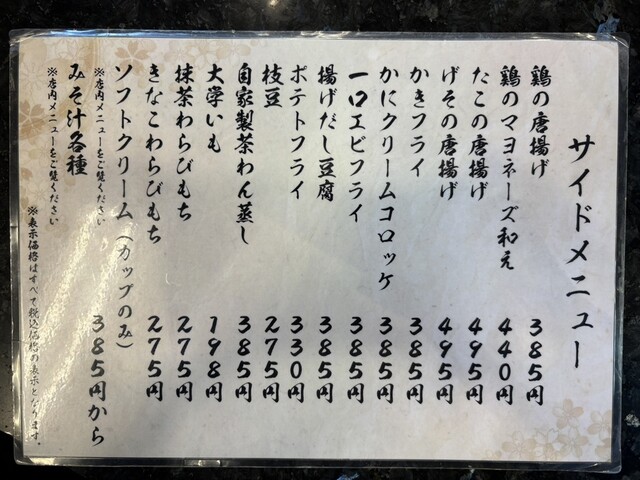 サイドメニュー
鶏の唐揚げ 385円
鶏のマヨネーズ和え 440円
たこの唐揚げ 495円
げその唐揚げ 495円
かきフライ 385円
かにクリームコロッケ 385円
一口エビフライ 385円
揚げだし豆腐 385円
ポテトフライ 330円
枝豆 275円
自家製茶わん蒸し 385円
大学いも 198円
抹茶わらびもち 275円
きなこわらびもち 275円
ソフトクリーム(カップのみ) 385円から
※店内メニューをご覧ください
みそ汁各種
※店内メニューをご覧ください
※表示価格はすべて税込価格の表示となります。